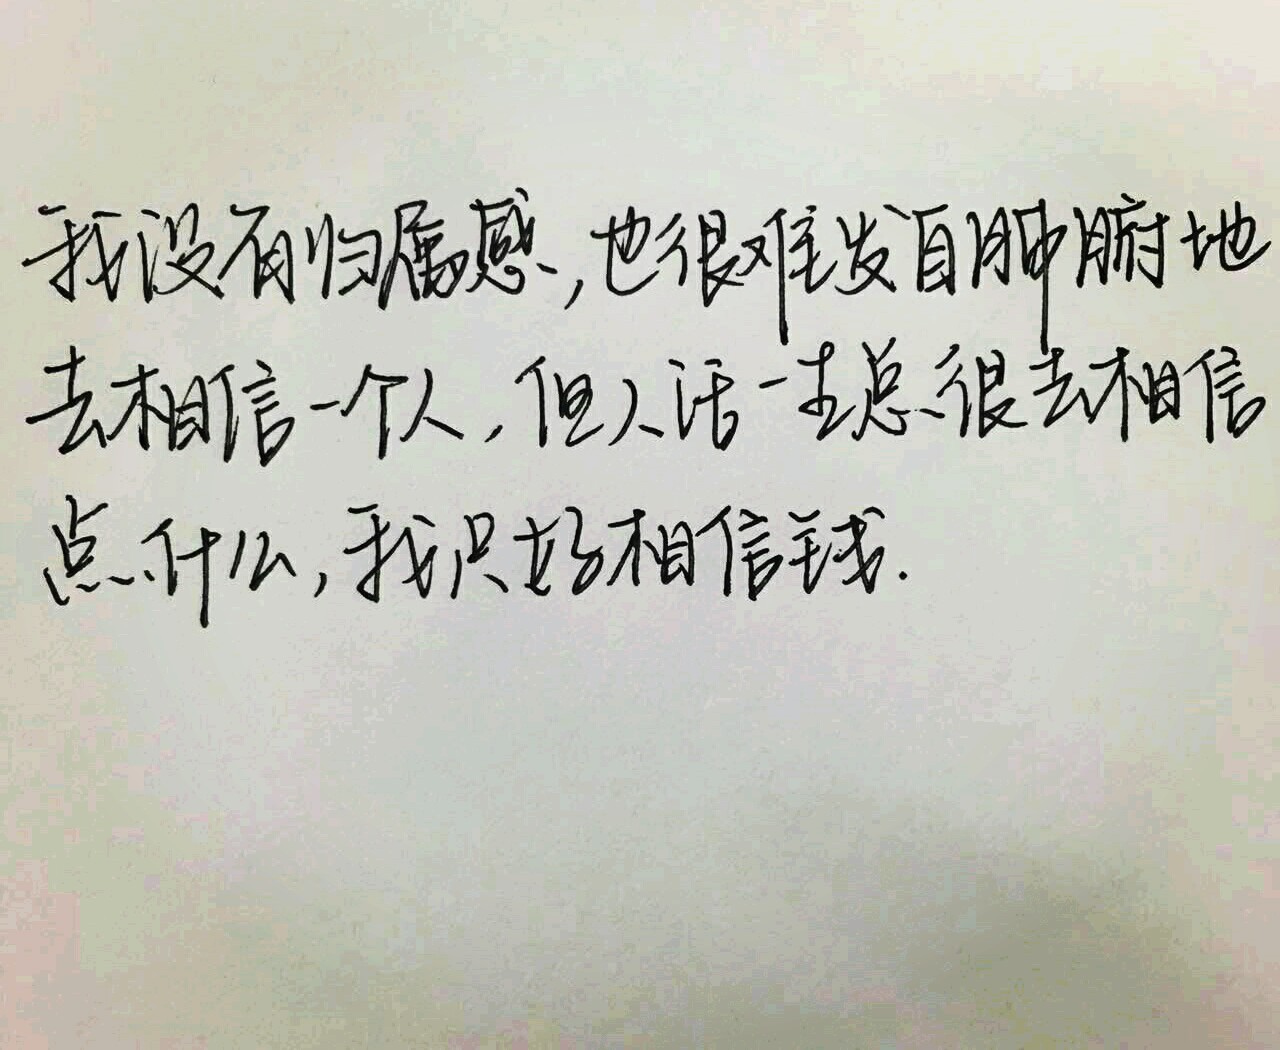 我没有归属感,也很难发自肺腑地
去相信一个人,但人活一生总很去相信
点什么,我只好相信钱.